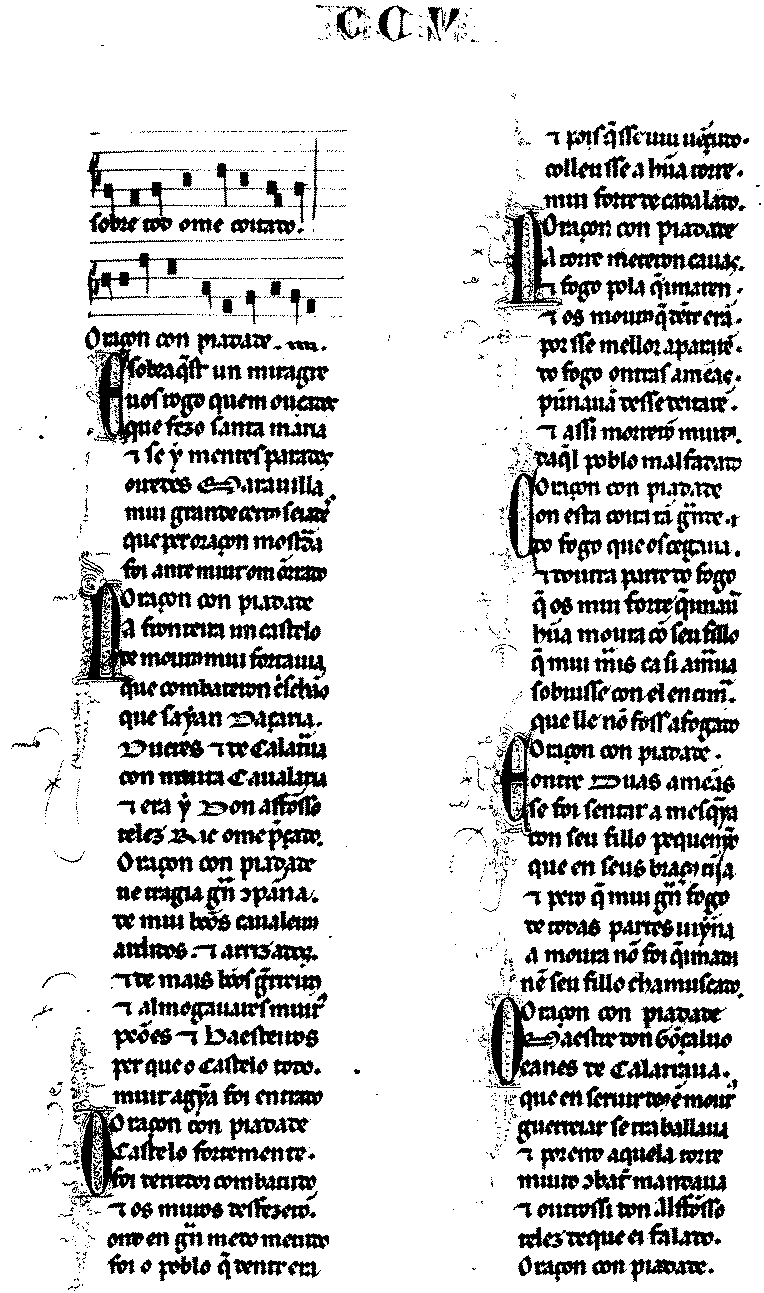 CCV
sobre tod ome coitado.
Oraçon con piadade.
E sobraq̃st un miragre
uos rogo quem ouçades
que fezo santa maria
⁊ se ỹ mentes parades
oyredes Marauilla
mui grande
que per oraçon mostrada
foi ante muit om onrrado
Oraçon con piadade
Na fronteira un castelo
de mouros mui fort auia
que combateron
que sayan Daçaria.
Ducres ⁊ de Calatraua
con muita Caualaria
⁊ era ỹ Don affonsso
telez Ric ome preçado.
Oraçon con piadade
ue tragia gñ conpana.
de mui bõos caualeiros
ardidos. ⁊ arrizados.
⁊ de mais bõos
⁊ almogauares muitos
peões ⁊ Baesteiros
per que o Castelo todo.
muit agỹa foi entrado
Oraçon con piadade
O Castelo fortemente.
foi derredor combatudo
⁊ os muros desfezeron.
onde en gñ medo metudo
foi o poblo q̃ dentr era
⁊ pois q̃sse uiu uençudo.
colleusse a hũa torre.
mui forte de cada lado.
Oraçon con piadade
Na torre meteron cauas.
⁊ fogo pola q̃imaren.
⁊ os mouros q̃ dentr eran.
por sse mellor apararẽ.
do fogo ontr as amẽas.
punauã desse deitarẽ.
⁊ assi morrerõ muitos.
daq̃l poblo malfadado
Oraçon con piadade
Con esta coita tã gñde.
do fogo que os cegaua.
⁊ doutra parte do fogo
q̃ os mui forte q̃imaua
hũa moura cõ seu fillo
q̃ mui mais ca si amaua
sobiusse con el en cima.
que lle nõ foss afogado
Oraçon con piadade.
Entre Duas amẽas
se foi sentar a mesq̃ya
con seu fillo pequenỹo
que en seus braços tĩia
⁊ pero q̃ mui gñ fogo
de todas partes uĩyna
a moura nõ foi q̃imada
nẽ seu fillo chamuscado.
Oraçon con piadade
O Maestre don Gõçaluo
eanes de Calatraua.
que en seruir
guerreiar se traballaua
⁊ porend aquela torre
muito conbater mandaua
⁊ outrossi don Alffonsso
telez de que ei falado.
Oraçon con piadade.